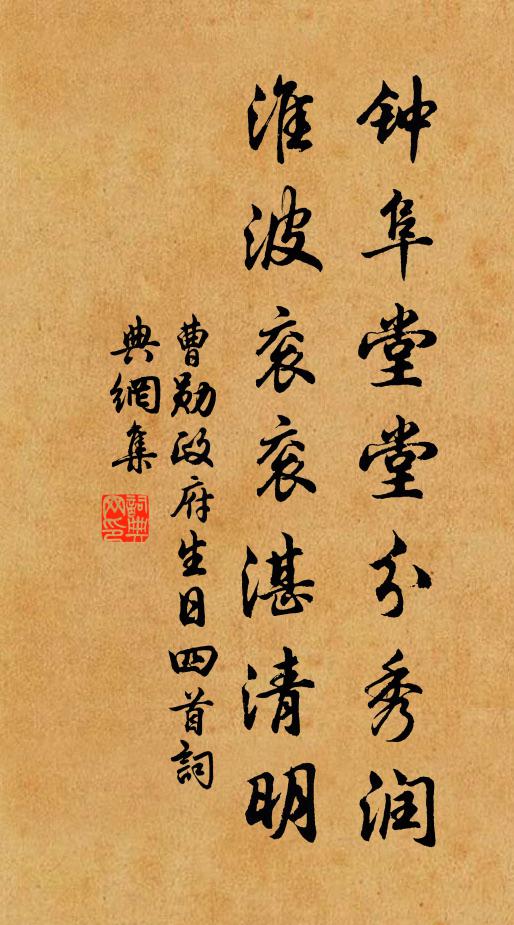 钟阜堂堂分秀润
淮波衮衮湛清明
曹勋政府生日四首詞
典網集
詞典
网印